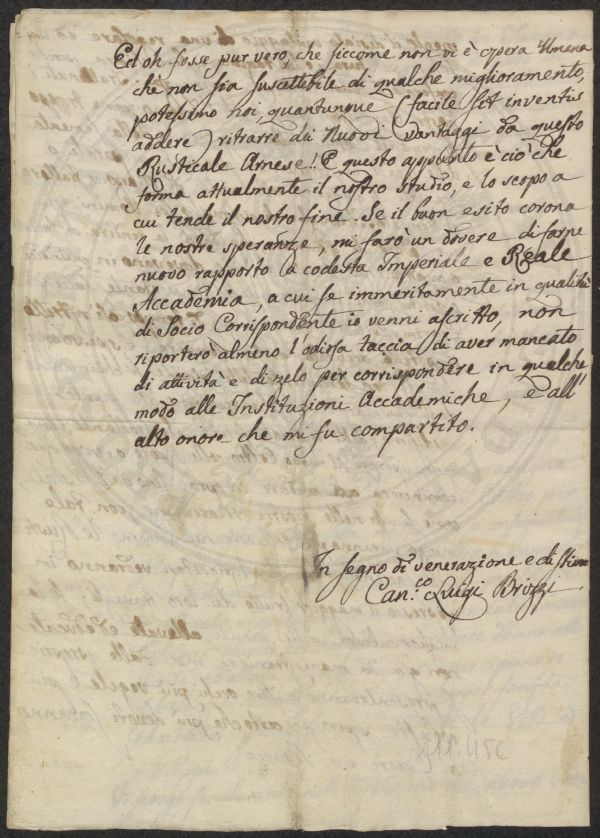 Ed oh fosse pur vero, che siccome non vi è opera Umana
chè non sia suscettibile di qualche miglioramento,
potessimo noi, quantunque (facile sit inventis
addere) ritrarre dei Nuovi vantaggi da questo
Rusticale Arnese!! E questo appunto è ciò che
forma attualmente il nostro studio, e lo scopo a
cui tende il nostro fine. Se il buon esito corona
le nostre speranze, mi farò un dovere di farne
nuovo rapporto a codesta Imperiale e Reale
Accademia, a cui se immeritamente in qualità
di Socio Corrispondente io venni ascritto, non
riporterò almeno l'odiosa taccia di aver mancato
di attività e di zelo per corrispondere in qualche
modo alle Instituzioni Accademiche, e all'
alto onore che mi fu compartito.
In segno di venerazione e di stima
Can.co Luigi Brizzi